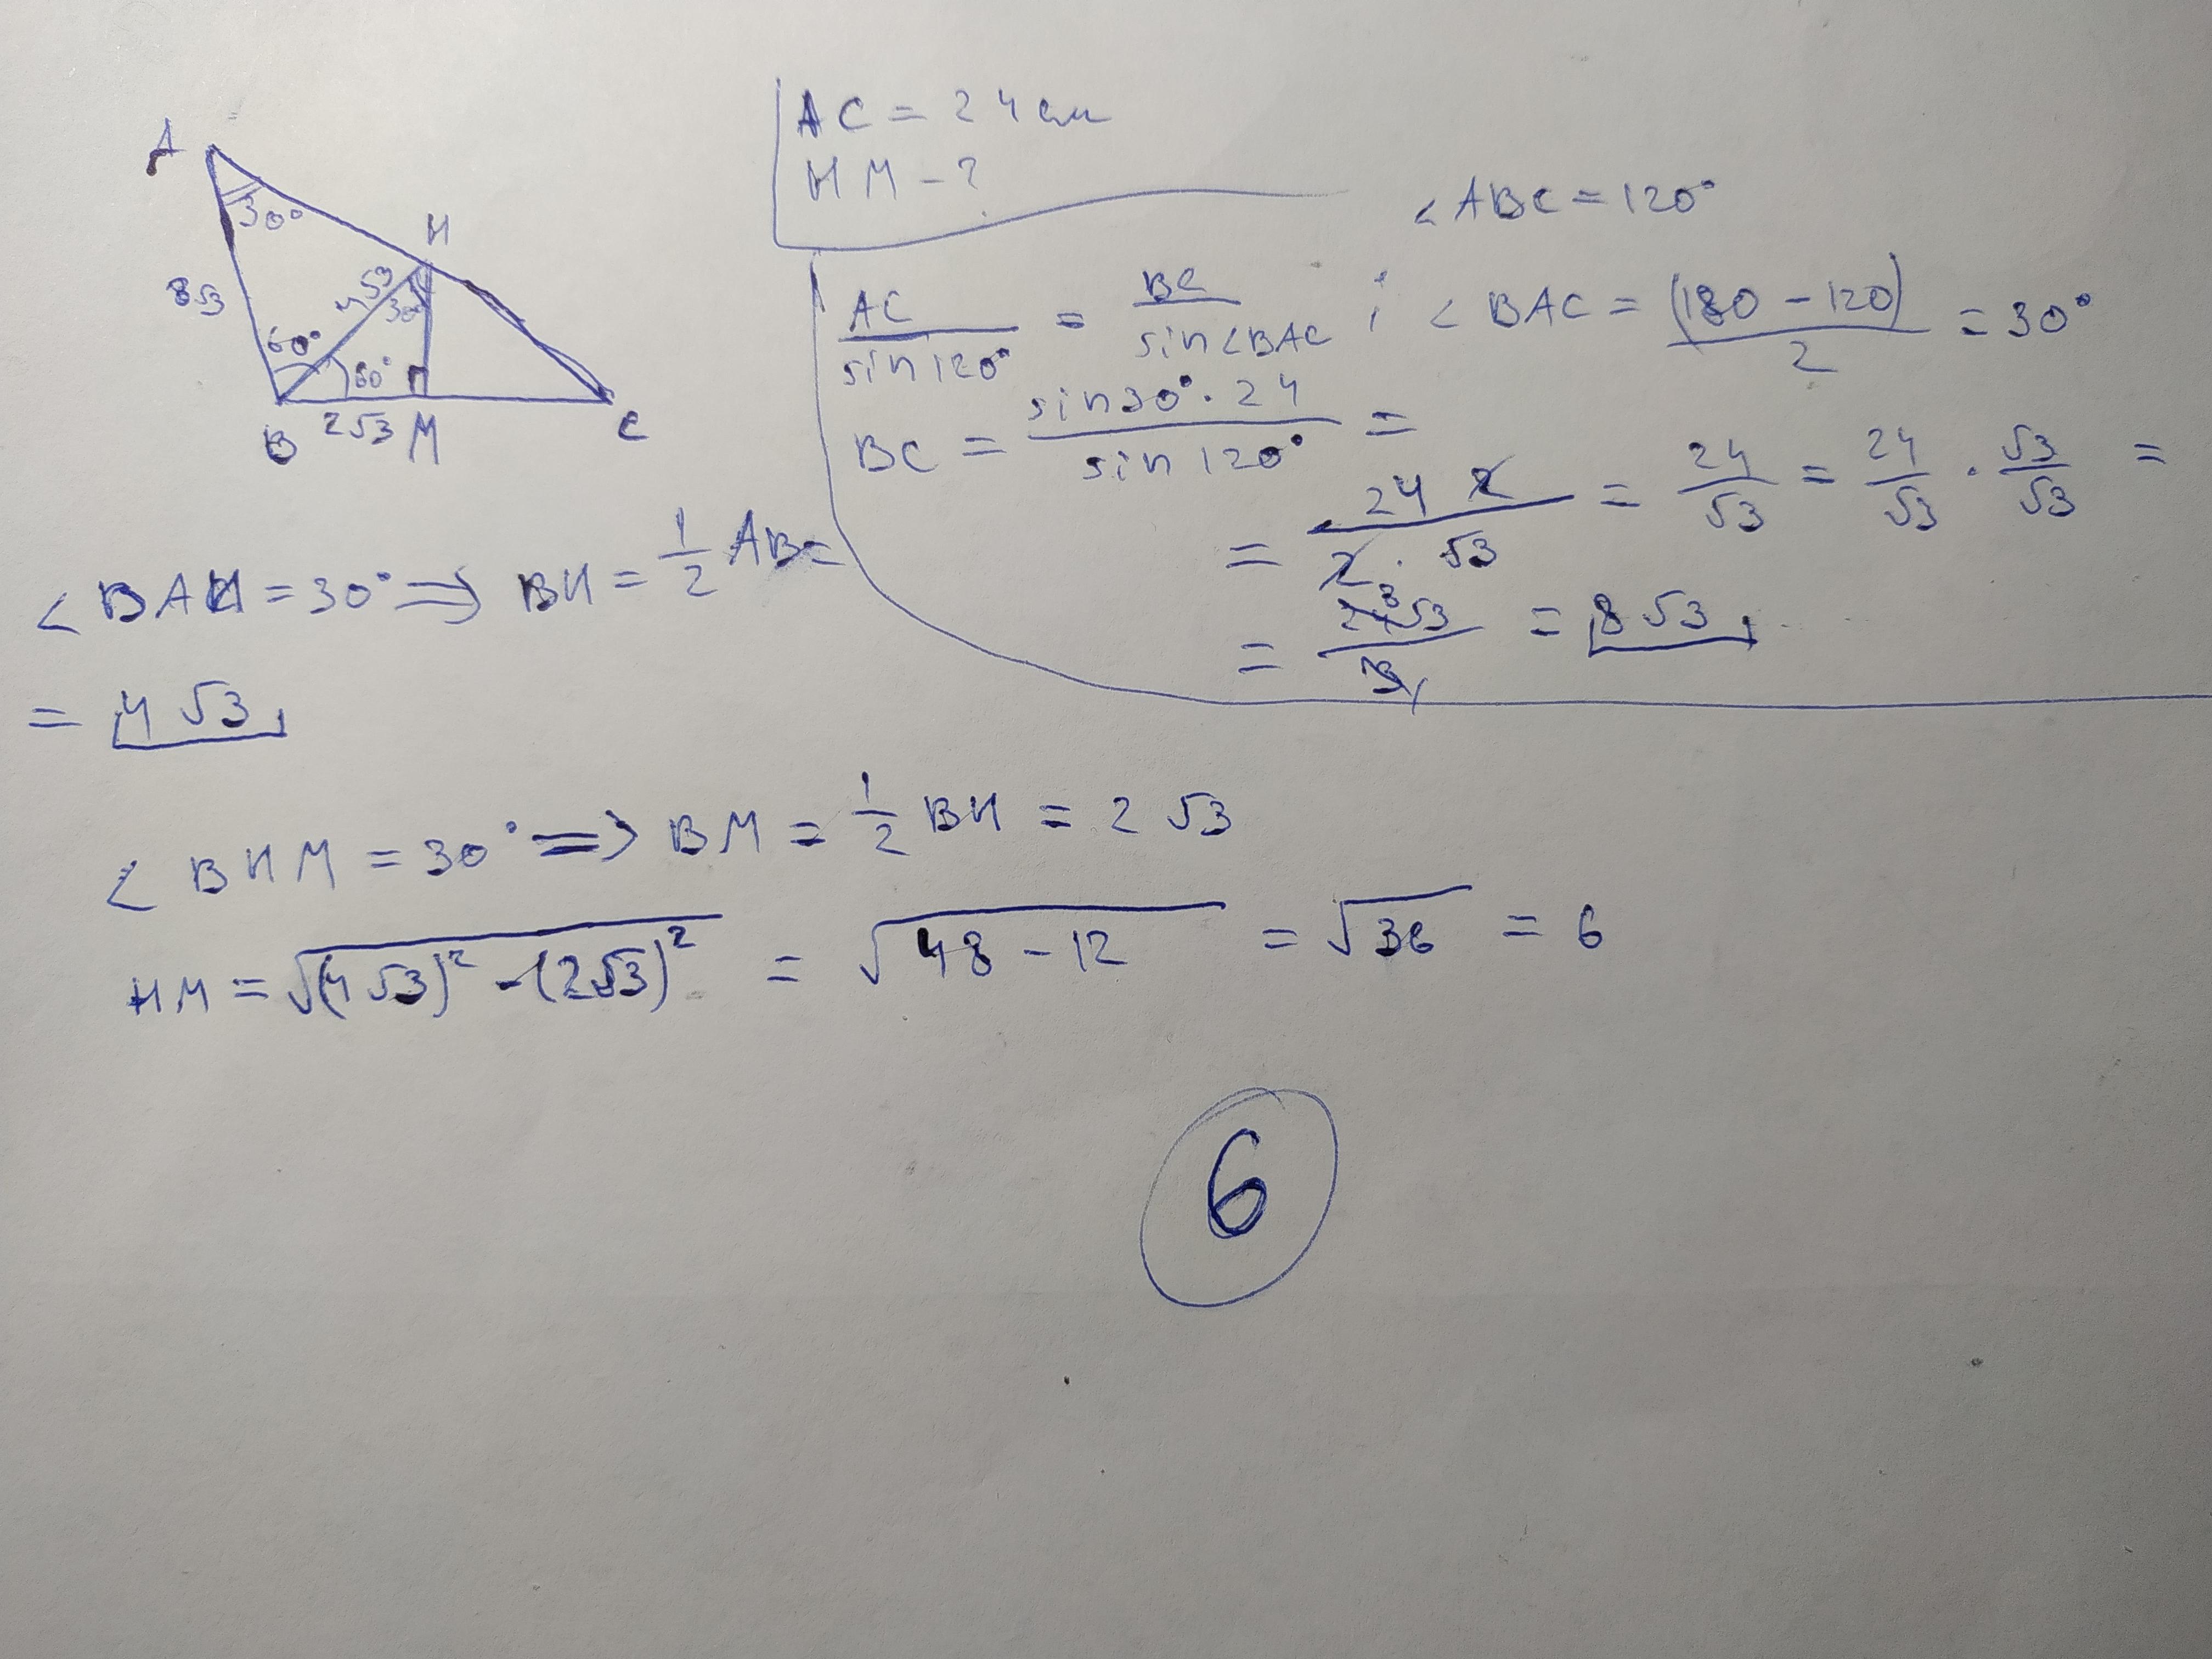 AC = 24 см
HM - ?
A
30°
H
8√3
4√3
30°
60°
60°
B 2√3 M C
∠ABC = 120°
AC / sin120° = BC / sin∠BAC ; ∠BAC = (180 - 120) / 2 = 30°
BC = sin30° · 24 / sin120° =
= 24 2 / 2 · √3 = 24 / √3 = 24 / √3 · √3 / √3 =
= 24√3 / 3 = 8√3
∠BAH = 30° => BH = 1/2 AB =
= 4√3
∠BHM = 30° => BM = 1/2 BH = 2√3
HM = √(4√3)² - (2√3)² = √48 - 12 = √36 = 6
6